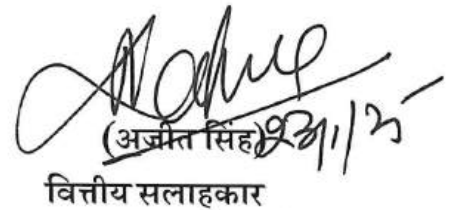 (अजीत सिंह) 23/1/25
वित्तीय सलाहकार